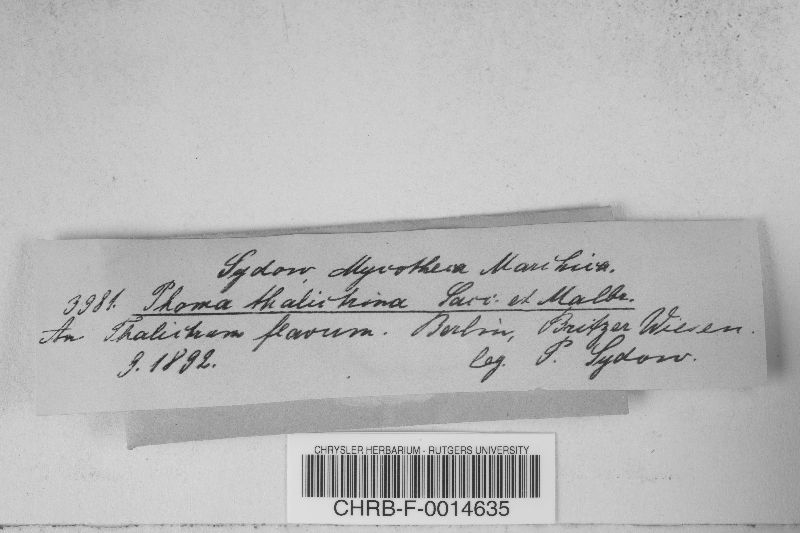 Sydow, Mycotheca Marchica.
3981. Phoma thalictrina Sacc. et Malbr.
An Thalictrum flavum. Berlin, Britzer Wiesen.
9. 1892. leg. P. Sydow.
CHRYSLER HERBARIUM - RUTGERS UNIVERSITY
CHRB-F-0014635